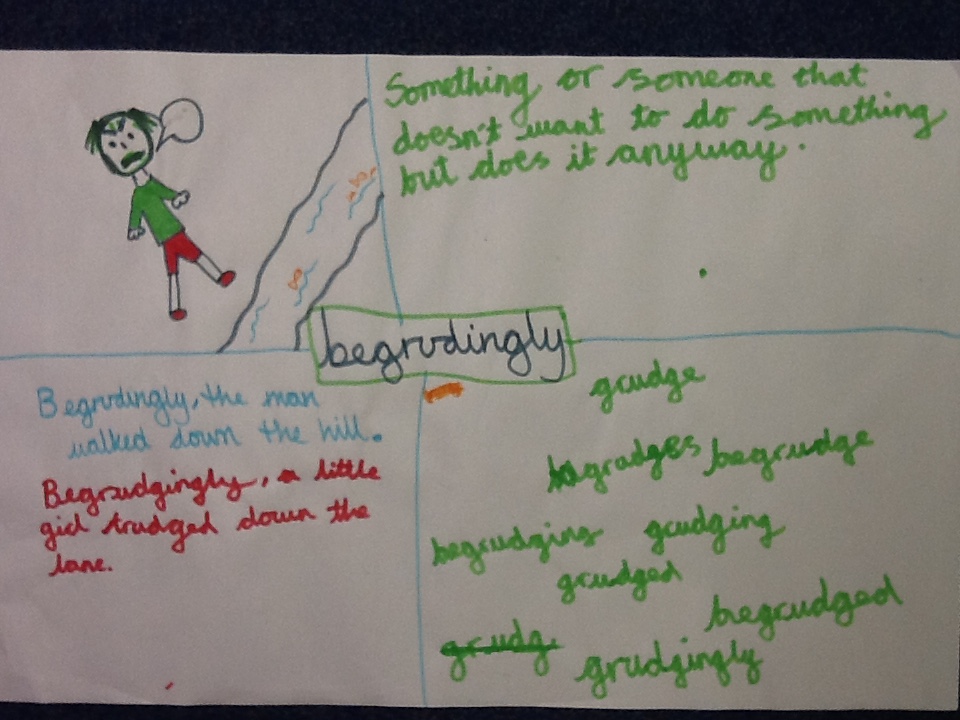 Something or someone that
doesn't want to do something
but does it anyway.
begrudingly
Begrudingly, the man
walked down the hill.
Begrudgingly, a little
girl trudged down the
lane.
grudge
begrudges begrudge
begrudging grudging
grudged
begrudged
grudg
grudgingly